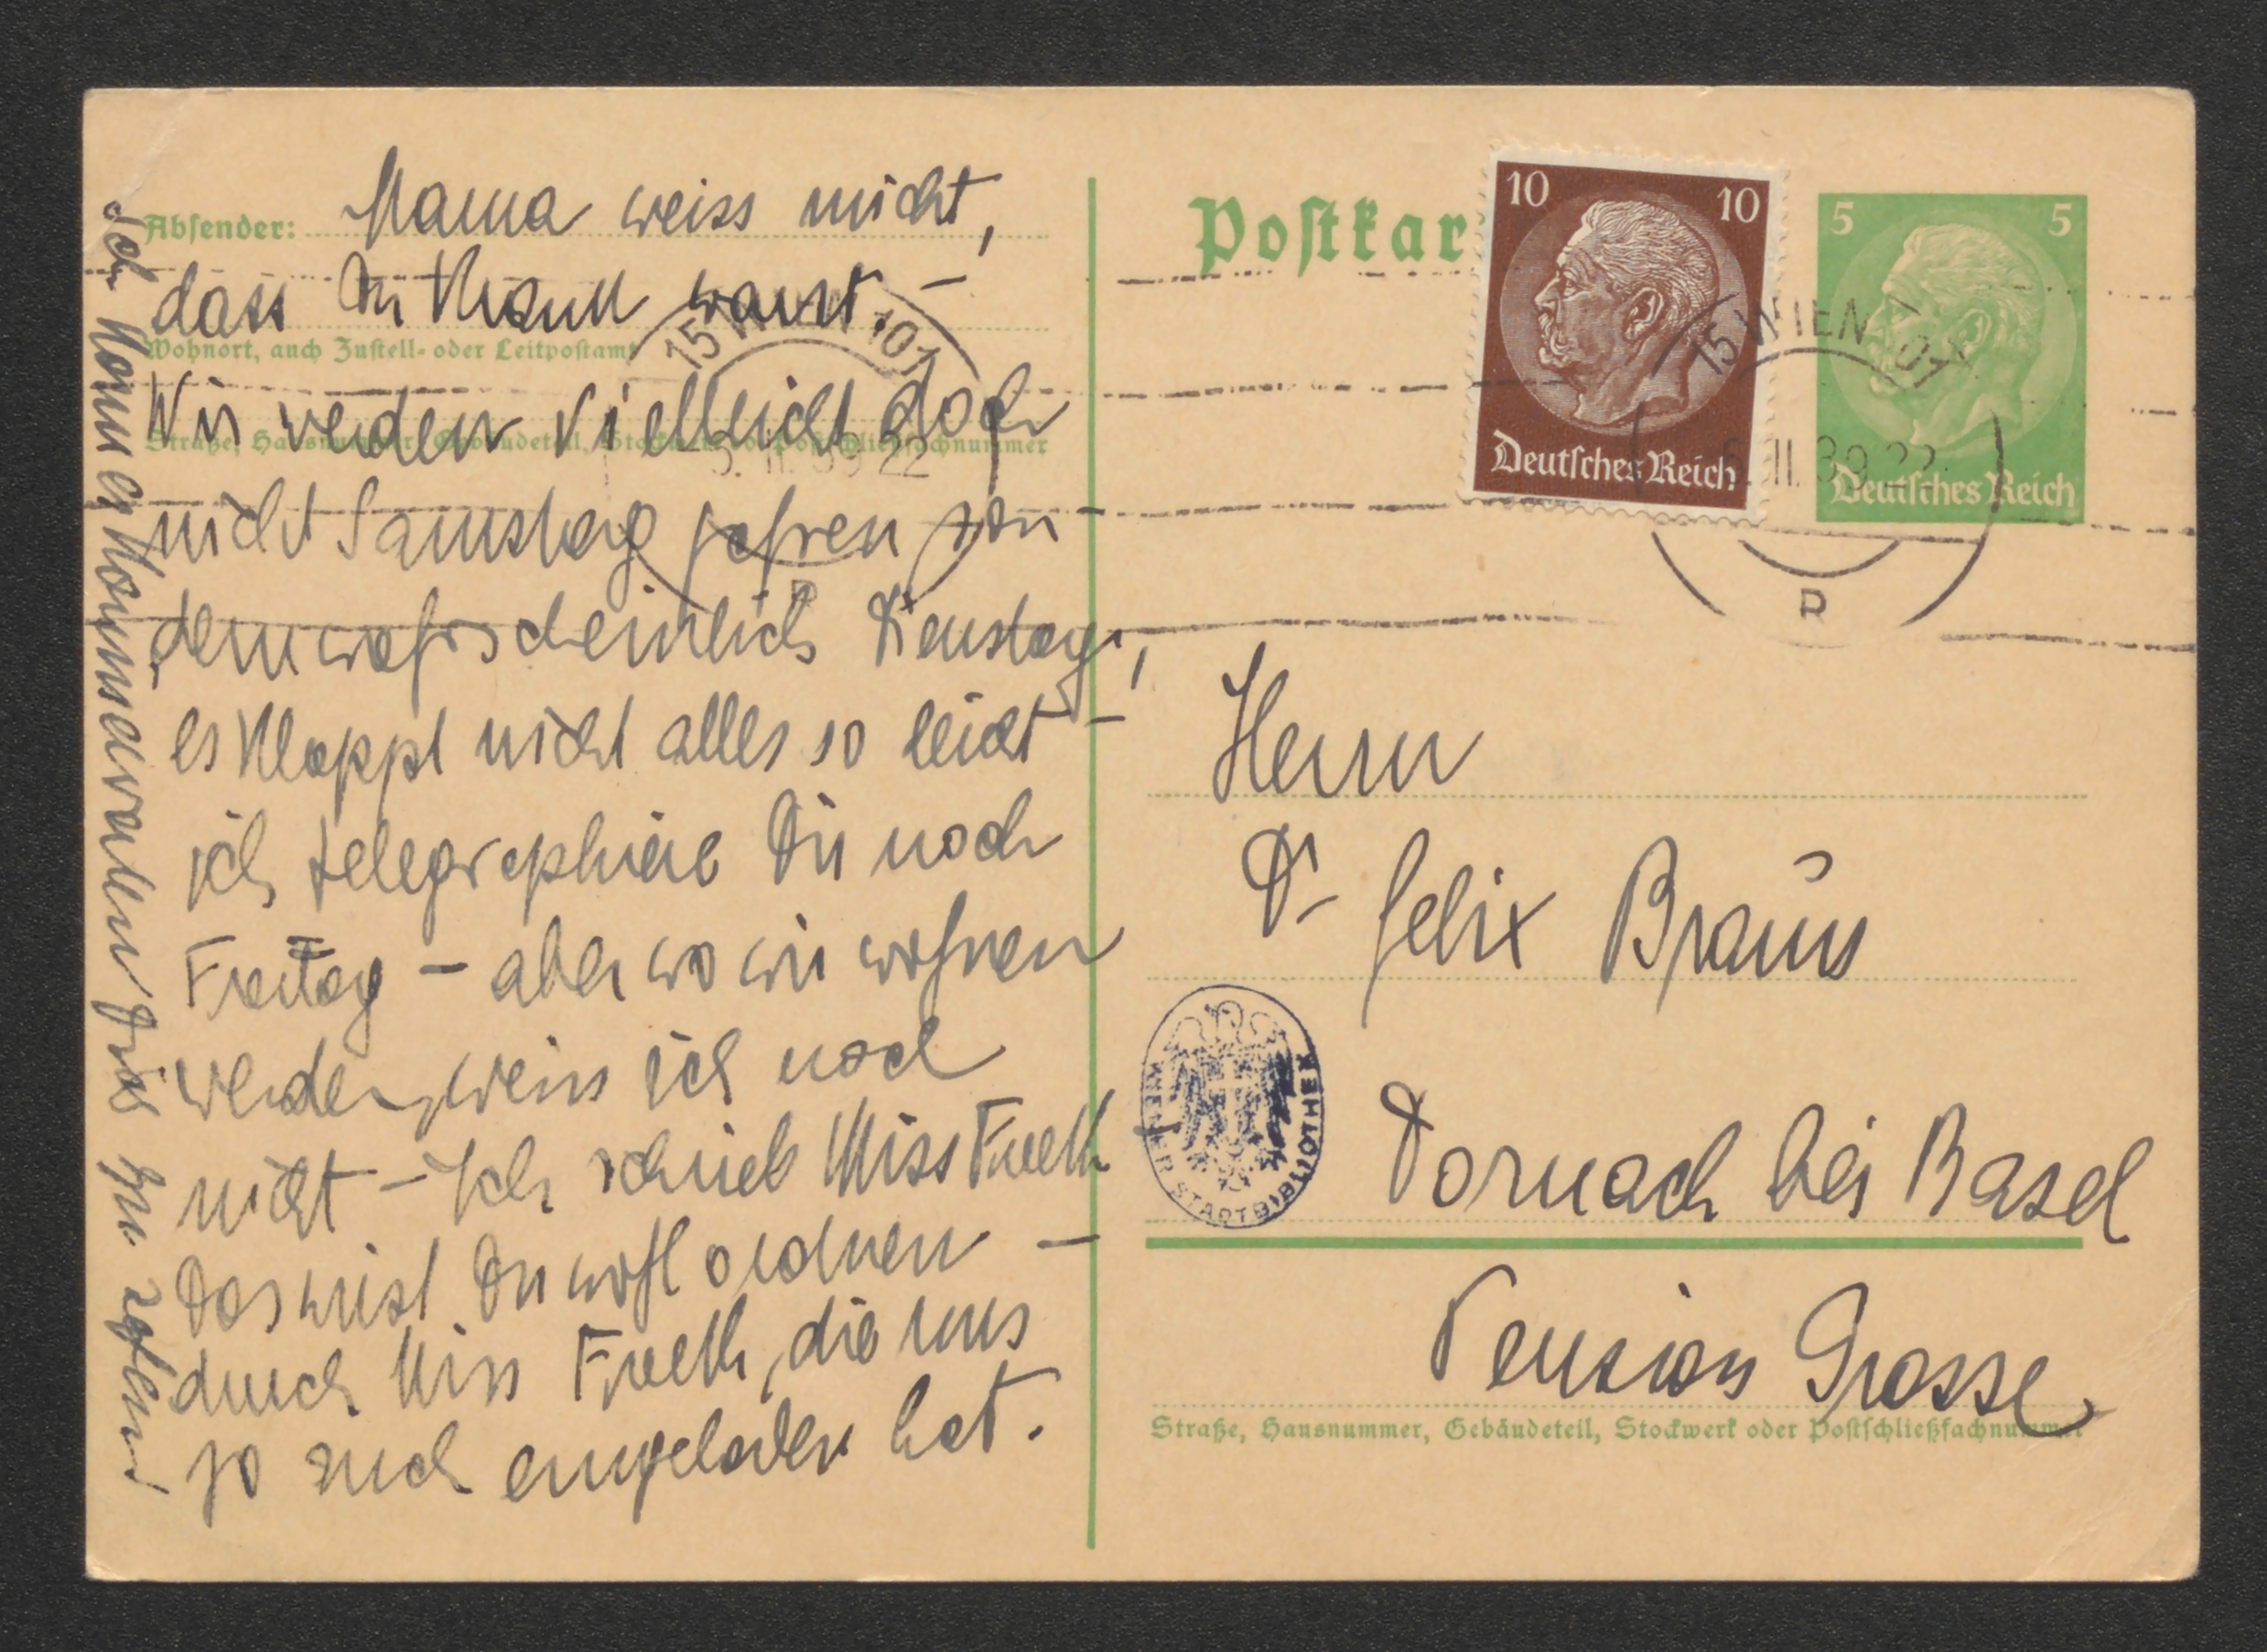 Mama weiss nicht,
dass Du krank warst. –
Wir werden vielleicht doch
nicht Samstag fahren son-
dern wahrscheinlich Dienstag,
es klappt nicht alles so leicht –
ich telegraphiere Dir noch
Freitag – aber wo wir wohnen
werden, weiss ich noch
nicht – Ich schrieb Miss
Das wirst Du wohl ordnen –
durch Miss, die uns
ja auch eingeladen hat.
Ich kann es kaum erwarten Dich zu sehen!
Absender:
Wohnort, auch Zustell- oder Leitpostamt
Straße, Hausnummer, Gebäudeteil, Stockwerk oder Postschließfachnummer
15 101
5. II. 39 22
Postkar
10 10
Deutsches Reich
5 5
Deutsches Reich
15 WIEN 101
II. 39 22
Herrn
Dr Felix Braun
Dornach bei Basel
Pension Grosse
Straße, Hausnummer, Gebäudeteil, Stockwerk oder Postschließfachnummer
WIENER STADTBIBLIOTHEK